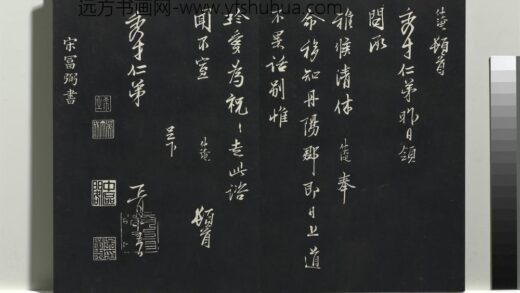 远方书画网-www.yfshuhua.com
頓首
秀才仁弟昨日領
問承
雅候清休 奉
命移知丹陽郡即日上道
不果話別惟
珍愛為祝〻走此諮
聞不宣
頓首
呈下
秀才仁弟
宋富弼書